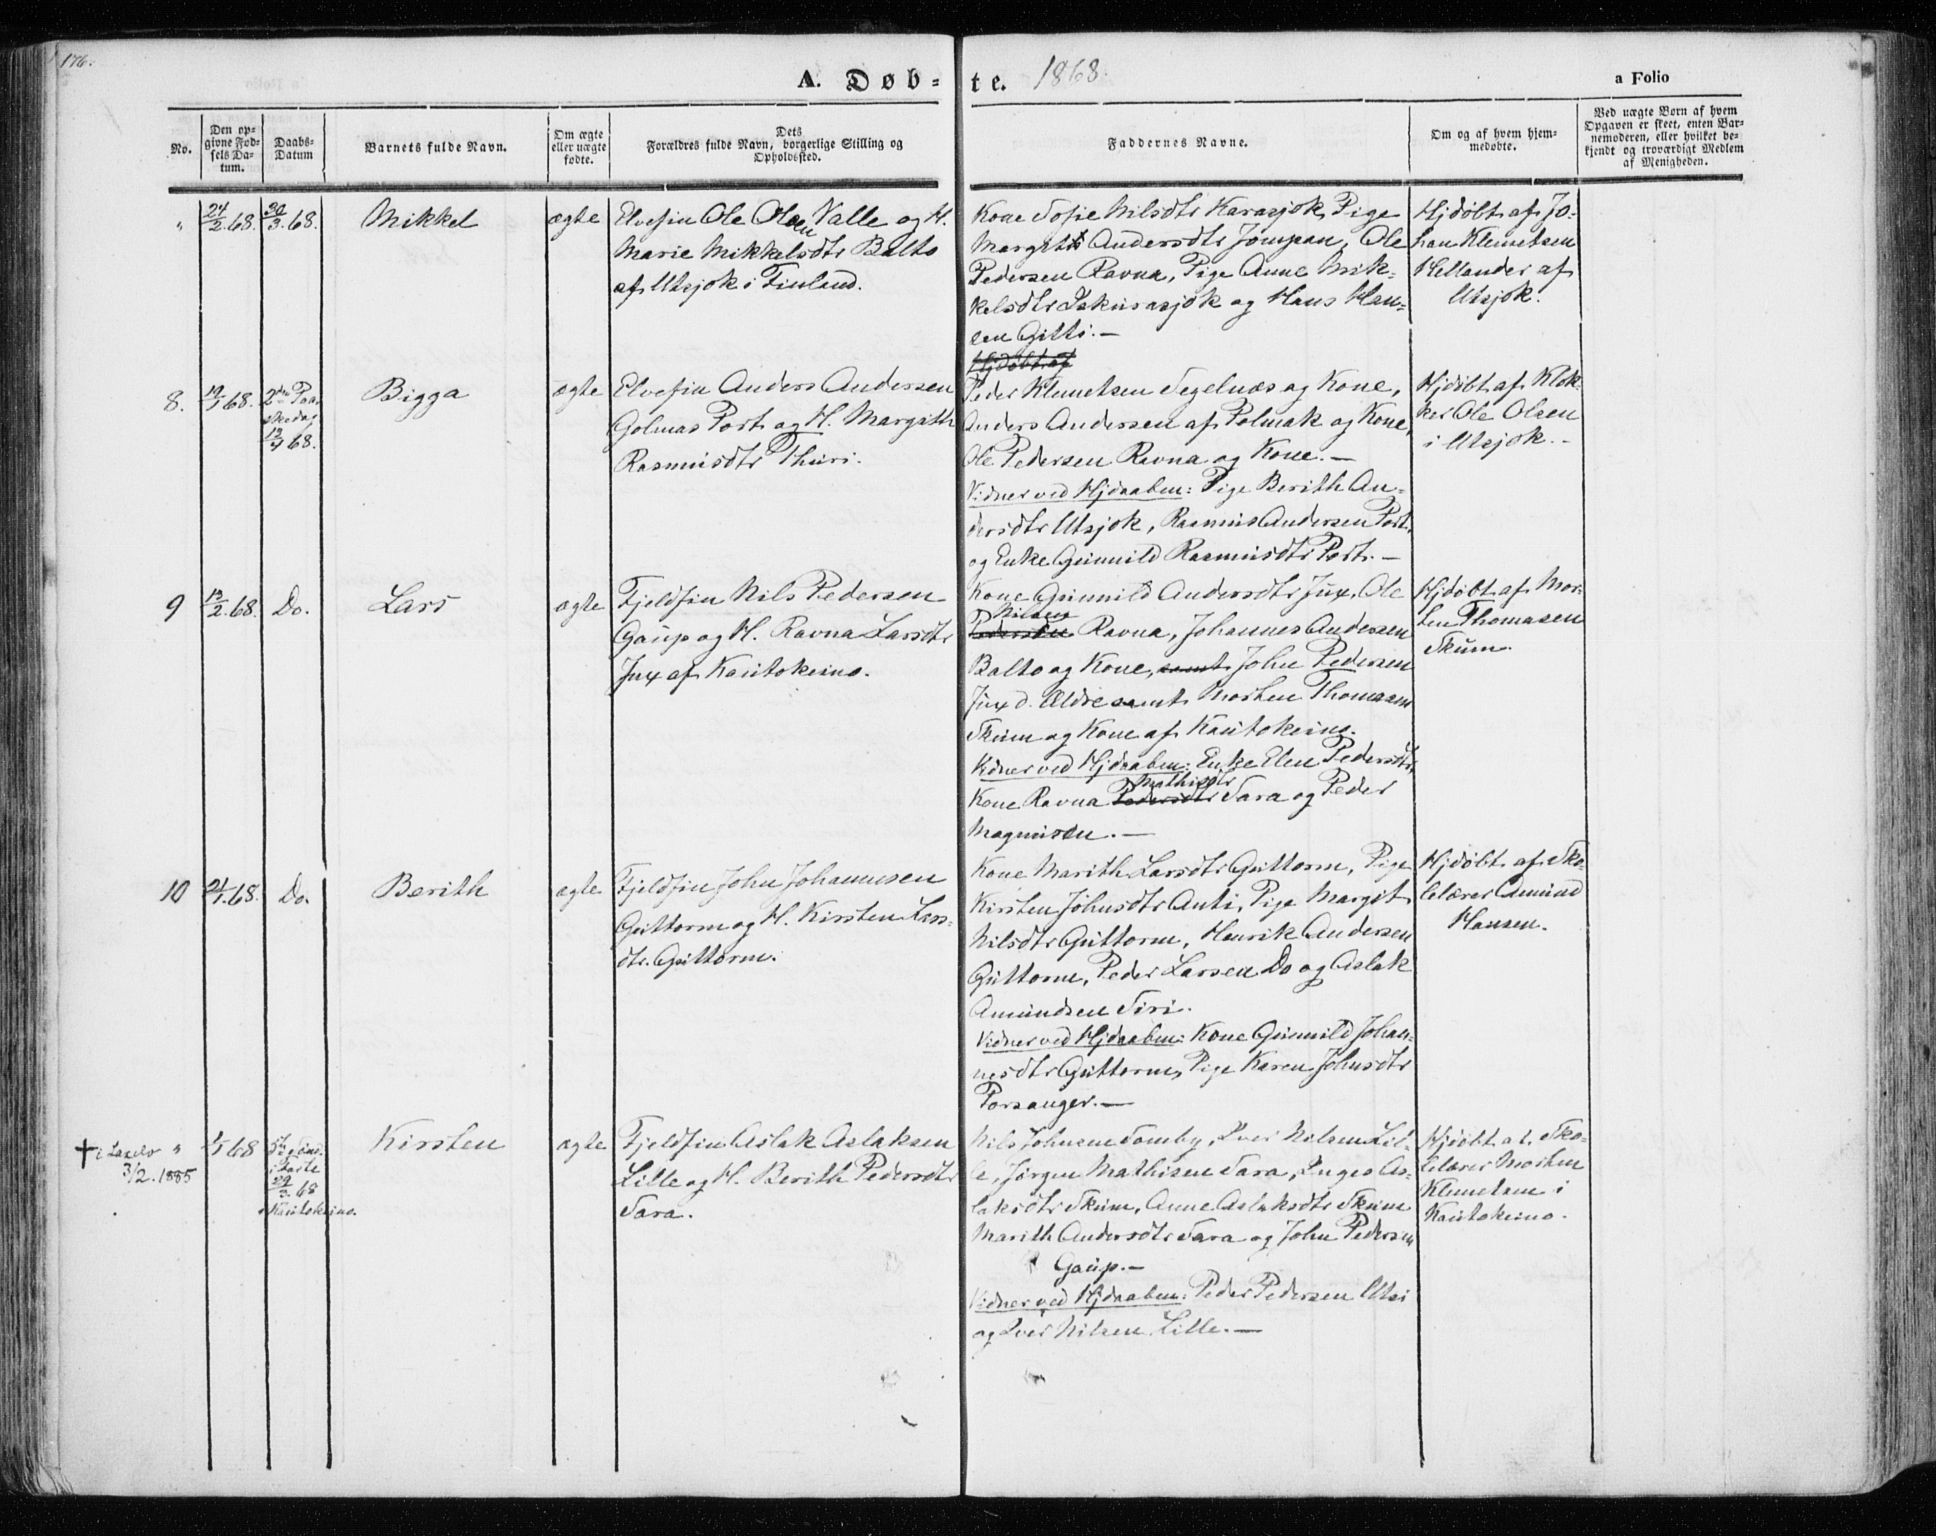 176.
A. Døb-te. 1868.
a Folio
No.
Den op-
givne Fød-
sels Da-
tum.
Daabs-
Datum
Barnets fulde Navn.
Om ægte
eller uægte
fødte.
Dets
Forældres fulde Navn, borgerlige Stilling og
Opholdssted.
Faddernes Navne.
Om og af hvem hjem-
medøbte.
Ved uægte Børn af hvem
Opgaven er skeet, enten Bar-
nemoderen, eller hvilket be-
kjendt og troværdigt Medlem
af Menigheden.
"
24/2 68.
30/3 68.
Mikkel
ægte
Elvefin Ole Olsen Valle og H.
Marie Mikkelsdtr Balto
af Utsjok i Finland.
Kone Sofie Nilsdtr Karasjok, Pige
Margith Andersdtr Jompan, Ole
Pedersen Ravna, Pige Anne Mik-
kelsdtr Iskurasjok og Hans Han-
sen Gitti.—
Hjdøbt af
Hjdøbt af Jo-
han Klemetsen
Hellander af
Utsjok.
8.
19/1 68.
2den Paa-
skedag
13/4 68.
Bigga
ægte
Elvefin Anders Andersen
Golmas Port og H. Margith
Rasmusdtr Thuri.
Peder Klemetsen Segelnæs og Kone,
Anders Andersen af Polmak og Kone,
Ole Pedersen Ravna og Kone.—
Vidner ved Hjdaaben: Pige Berith An-
dersdtr Utsjok, Rasmus Andersen Port
og Enke Gunnild Rasmusdtr Port.—
Hjdøbt af Klok-
ker Ole Olsen
i Utsjok.-
9
13/2 68.
Do.
Lars
ægte
Fjeldfin Nils Pedersen
Gaup og H. Ravna Larsdtr
Jux af Kautokeino.
Kone Gunnild Andersdtr Jux, Ole
Nilsen
Pedersen Ravna, Johannes Andersen
Balto og Kone, samt John Pedersen
Jux d. Ældre samt Morten Thomasen
Skum og Kone af Kautokeino.
Vidner ved Hjdaaben: Enke Elen Pedersdtr,
Mathisdtr
Kone Ravna Pedersdtr Sara og Peder
Magnusen.—
Hjdøbt af Mor-
ten Thomasen
Skum.
10
21/1 68.
Do.
Berith
ægte
Fjeldfin John Johannesen
Guttorm og H. Kirsten Lars-
dtr. Guttorm.
Kone Marith Larsdtr Guttorm, Pige
Kirsten Johnsdtr Anti, Pige Margit
Nilsdtr Guttorm, Henrik Andersen
Guttorm, Peder Larsen Do og Aslak
Amundsen Siri.
Vidner ved Hjdaaben: Kone Gunnild Johan-
nesdtr Guttorm, Pige Karen Johnsdtr
Porsanger.—
Hjdøbt af Sko-
lelærer Amund
Hansen.
† i Laxelv "
3/2. 1885
1/1 68
5te Sønd.
i Faste
29/3. 68
i Kautokeino.
Kirsten
ægte
Fjeldfin Aslak Aslaksen
Lille og H. Berith Pedersdtr
Sara.
Nils Johnsen Somby, Iver Nilsen Lil-
le, Jørgen Mathisen Sara, Inger As-
laksdtr Skum, Anne Aslaksdtr Skum
Marith Andersdtr Sara og John Pedersen
Gaup.—
Vidner ved Hjdaaben: Peder Pedersen Utsi
og Iver Nilsen Lille.—
Hjdøbt af Sko-
lelærer Morten
Klemetsen i
Kautokeino.